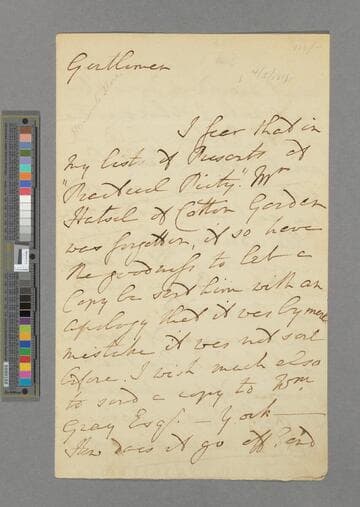 Gentlemen
I fear that in
my list of Presents of
"Practical Piety". Mr
Hatsel of Cotton Garden
was forgotten, if so have
the goodness to let a
Copy be sent him with an
apology that it was by mere
mistake it was not sent
before. I wish much also
to send a copy to Wm
Gray Esqr. - York -
How does it go off? and